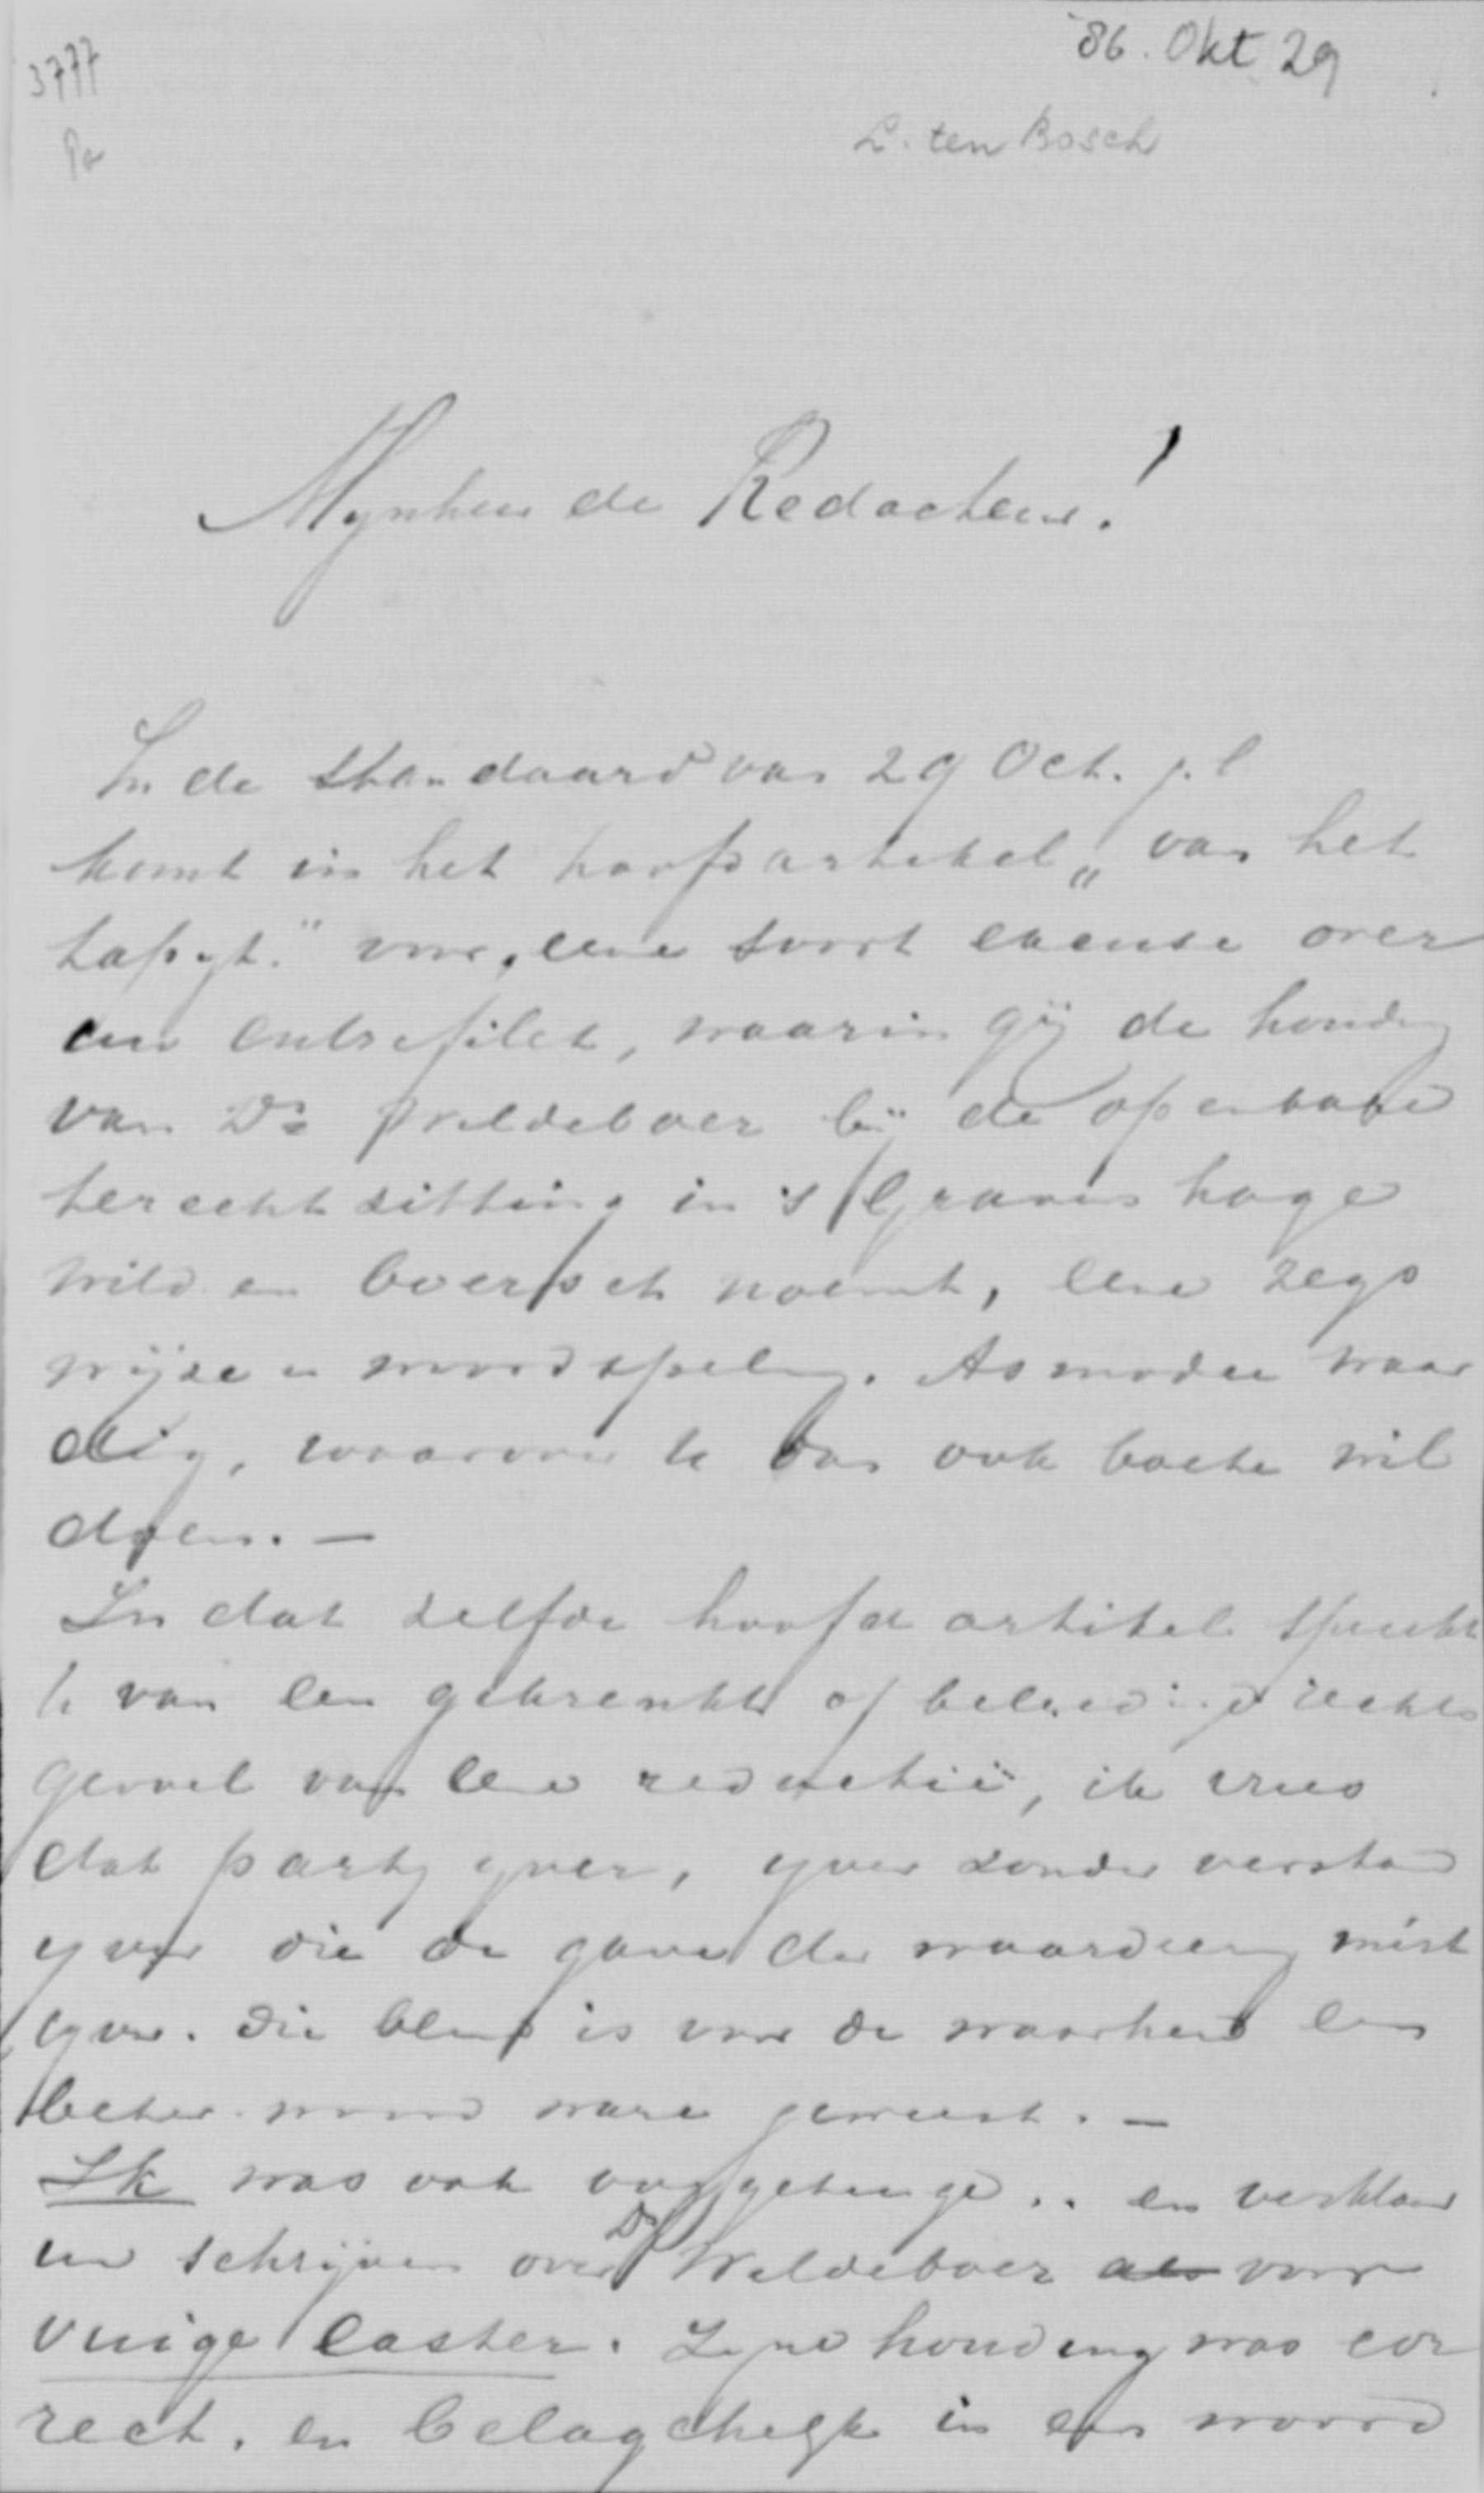 3777
Pa
86. Okt 29
L. ten Bosch
Mynheer de Redacteur!
In de Standaard van 29 Oct. j.l
komt in het hoofdartikel „van het
tapyt." voor, eene soort excuse over
een entrefilet, waarin gij de houding
van Dr Wildeboer bij de openbare
terechtzitting in 's Gravenhage
wild en boersch noemt, eene zegs
wijze en woordspeling. Asmodee waar
dig, waarvoor U dan ook boete wil
doen. —
In dat zelfde hoofdartikel spreekt
U van een gekrenkt of beleedigd rechts
gevoel van eene redactie, ik vrees
dat party yver, yver zonder verstand
yver die de gave der waardeering mist
yver. die blind is voor de waarheid een
beter woord ware geweest. —
Ik was oor getuige .. en verklaar
uw schrijven over Dr Wildeboer voor
vuige laster. Zyne houding was cor
rect, en belagchelyk in een woord